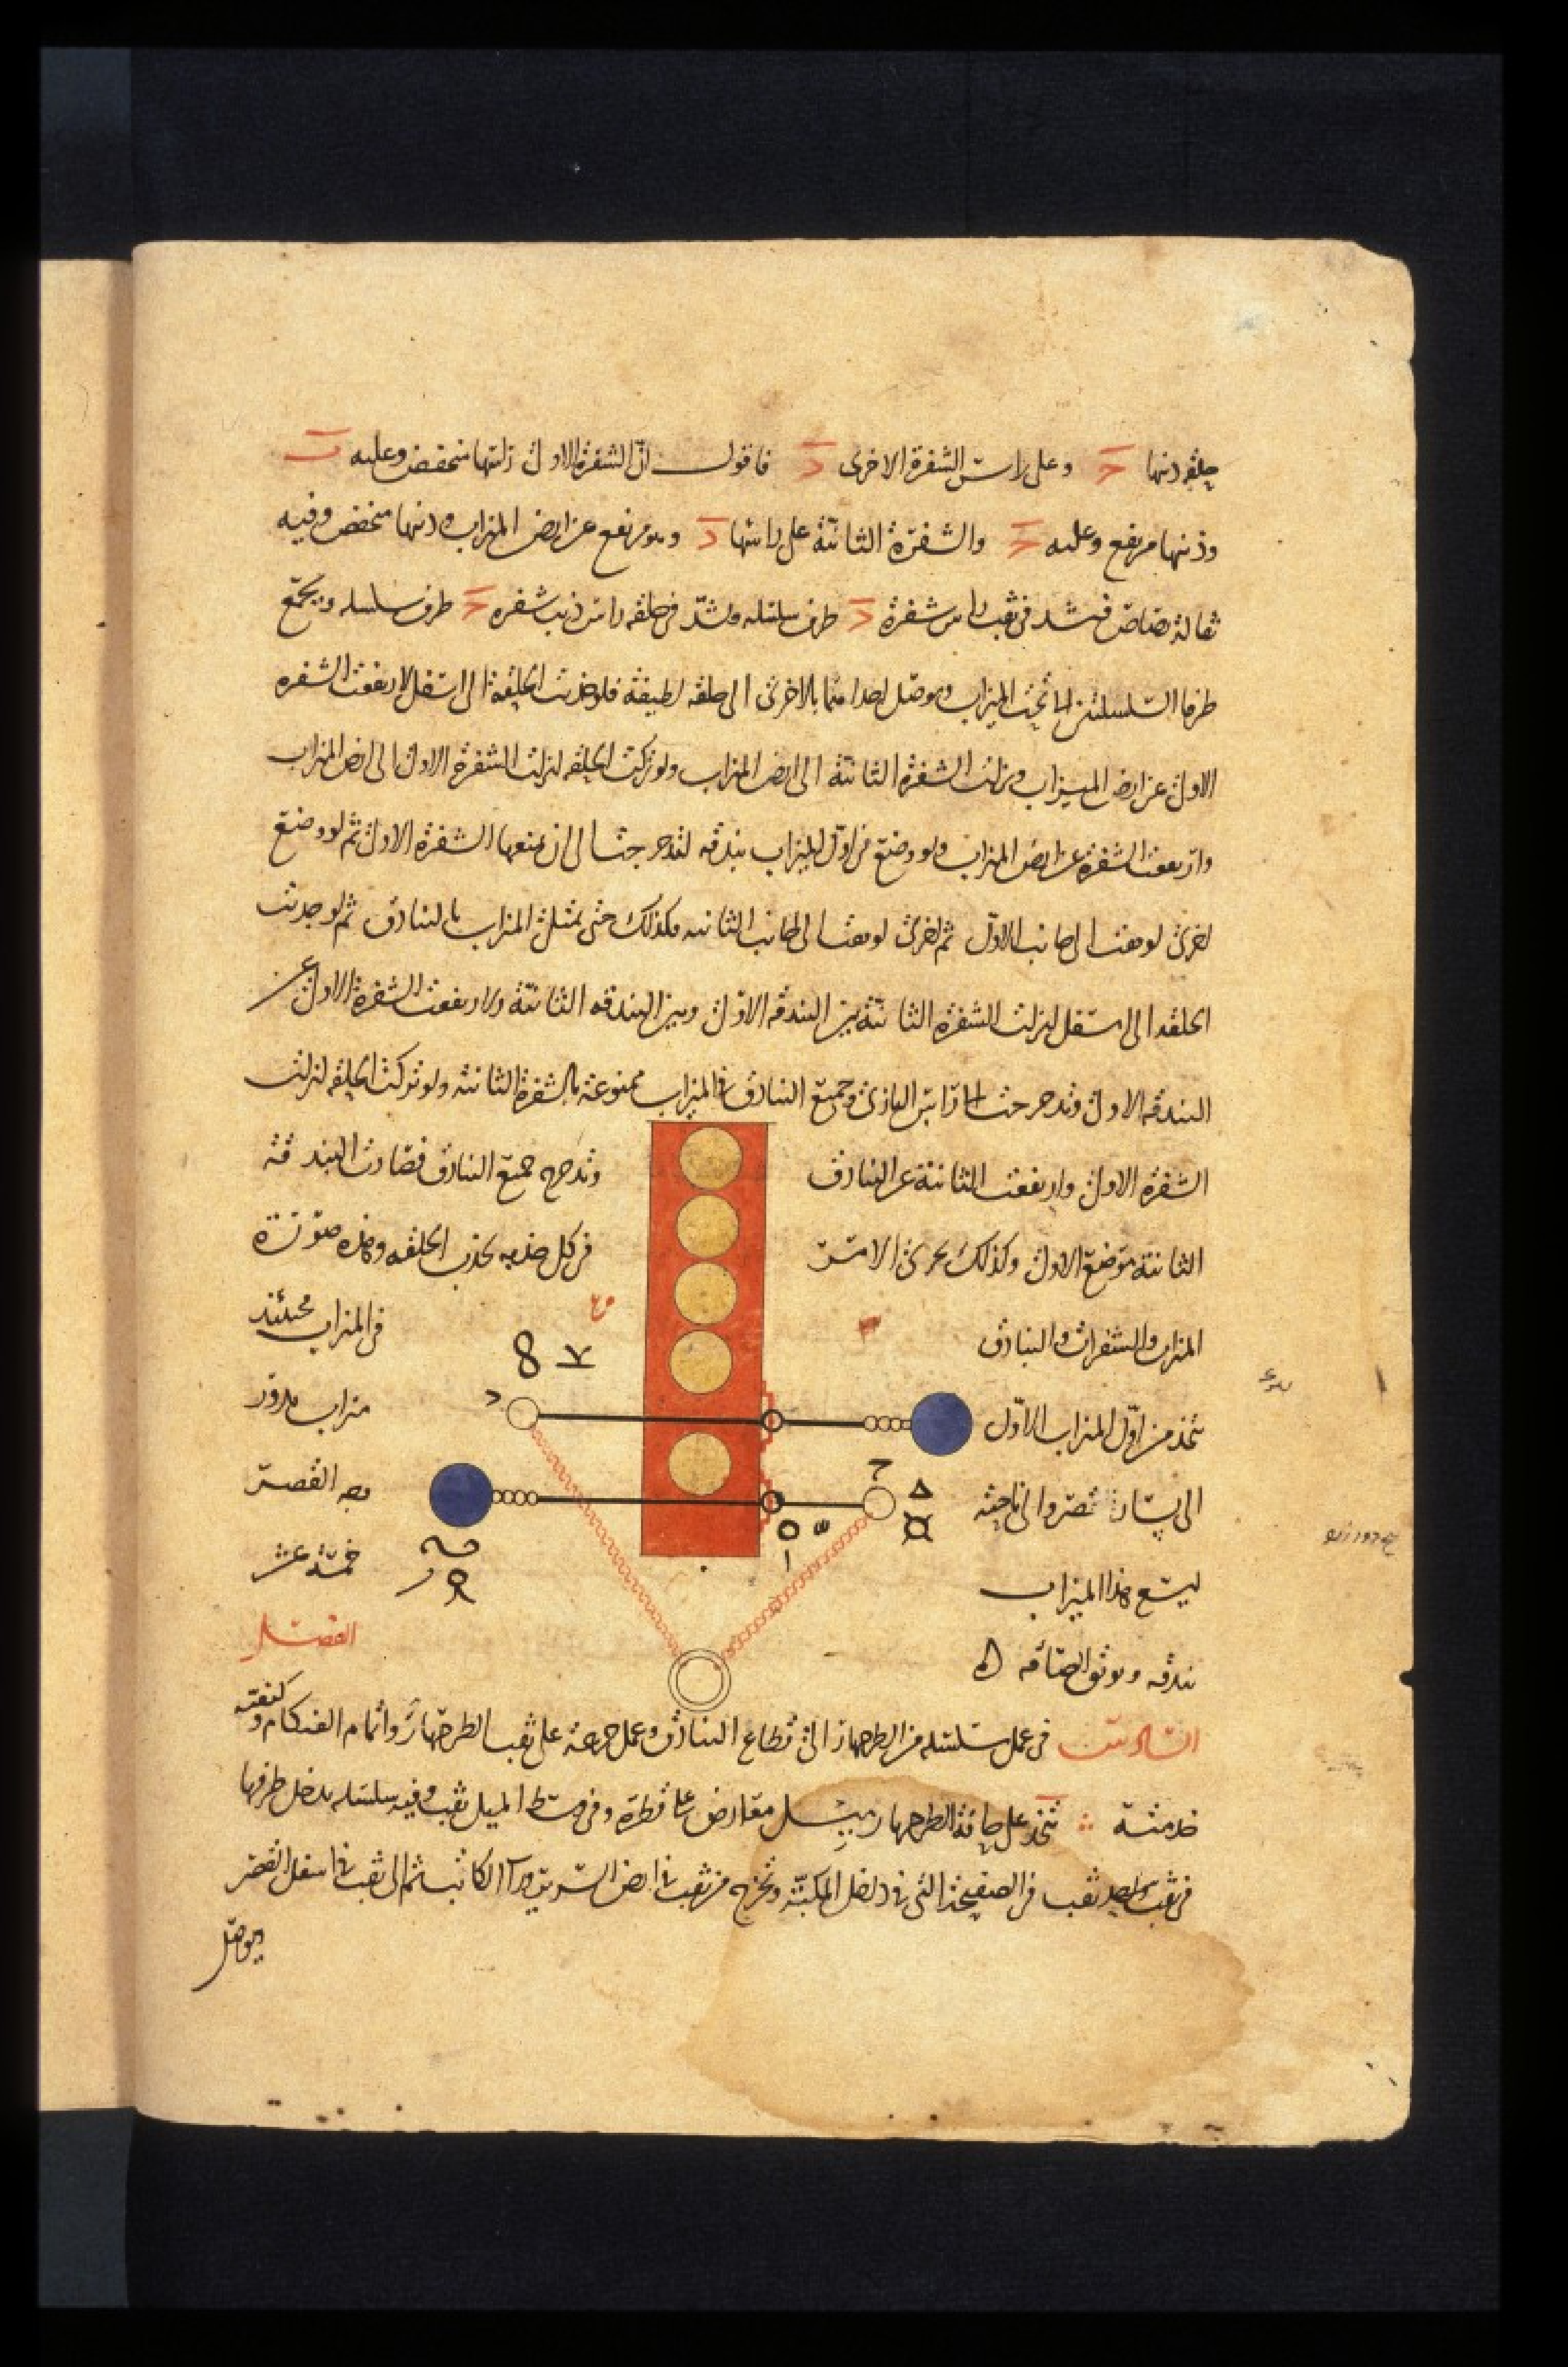 حلقه ذنبها ح وعلى راس الشفرة الاخرى د فاقول ان الشفرة الاولى راسها منخفض وعليه ب
وذنبها مرتفع وعليه ح والشفرة الثانية على راسها د وهو مرتفع عن ارض الميزاب وذنبها منخفض وفيه
ثقالة رصاص فيشد في ثقب راس شفرة د طرف سلسله ويشد في حلقه راس ذنب شفره ح طرف سلسله ويجمع
طرفا السلسلتين الى تحت الميزاب ويوصل احداهما بالاخرى الى حلقه لطيفة فلو جذبت الحلقة الى اسفل لارتفعت الشفره
الاولى عن ارض الميزاب ونزلت الشفرة الثانية الى ارض الميزاب ولو تركت الحلقه لنزلت الشفرة الاولى الى ارض الميزاب
وارتفعت الشفرة عن ارض الميزاب ولو وضع في اول الميزاب بندقه لتدحرجت الى ان يمنعها الشفرة الاولى ثم لو وضع
اخرى لوقفت الى جانب الاولى ثم اخرى لوقفت الى جانب الثانيه وكذلك حتى يمتلئ الميزاب بالبنادق ثم لو جذبت
الحلقه الى اسفل لنزلت الشفرة الثانية بين البندقه الاولى وبين البندقه الثانية ولارتفعت الشفرة الاولى عن
البندقه الاولى وتدحرجت الى راس البازى وجميع البنادق في الميزاب ممنوعة بالشفرة الثانية ولو تركت الحلقه لنزلت
الشفره الاولى وارتفعت الثانية عن البنادق وتدحرج جميع البنادق فصارت البندقة
الثانية موضع الاولى وكذلك يجرى الامر في كل جذبه بجذب الحلقه وهذه صورة
الميزاب والشفرات والبنادق في الميزاب فحينئذ
يتخذ من اول الميزاب الاول ميزاب مدور
الى يسار القصر والى ناحية وجه القصر
ليسع هذا الميزاب خمسة عشر
بندقه ويوثق الصاقه الفصل
السادس في عمل سلسله من الطرجهار الى قطاع البنادق وعمل جزعة على ثقب الطرجهار واتمام الفنكام وكيفية
خدمته يتخذ على حافة الطرجهار ميل معارض على قطره وفي وسط الميل ثقب وفيه سلسله يدخل طرفها
في ثقب ثقب في الصفيحة التى في داخل المكبة وتخرج من ثقب في ارض السرير ورآ الكاتب ثم الى ثقب في اسفل القصر
ويوصل